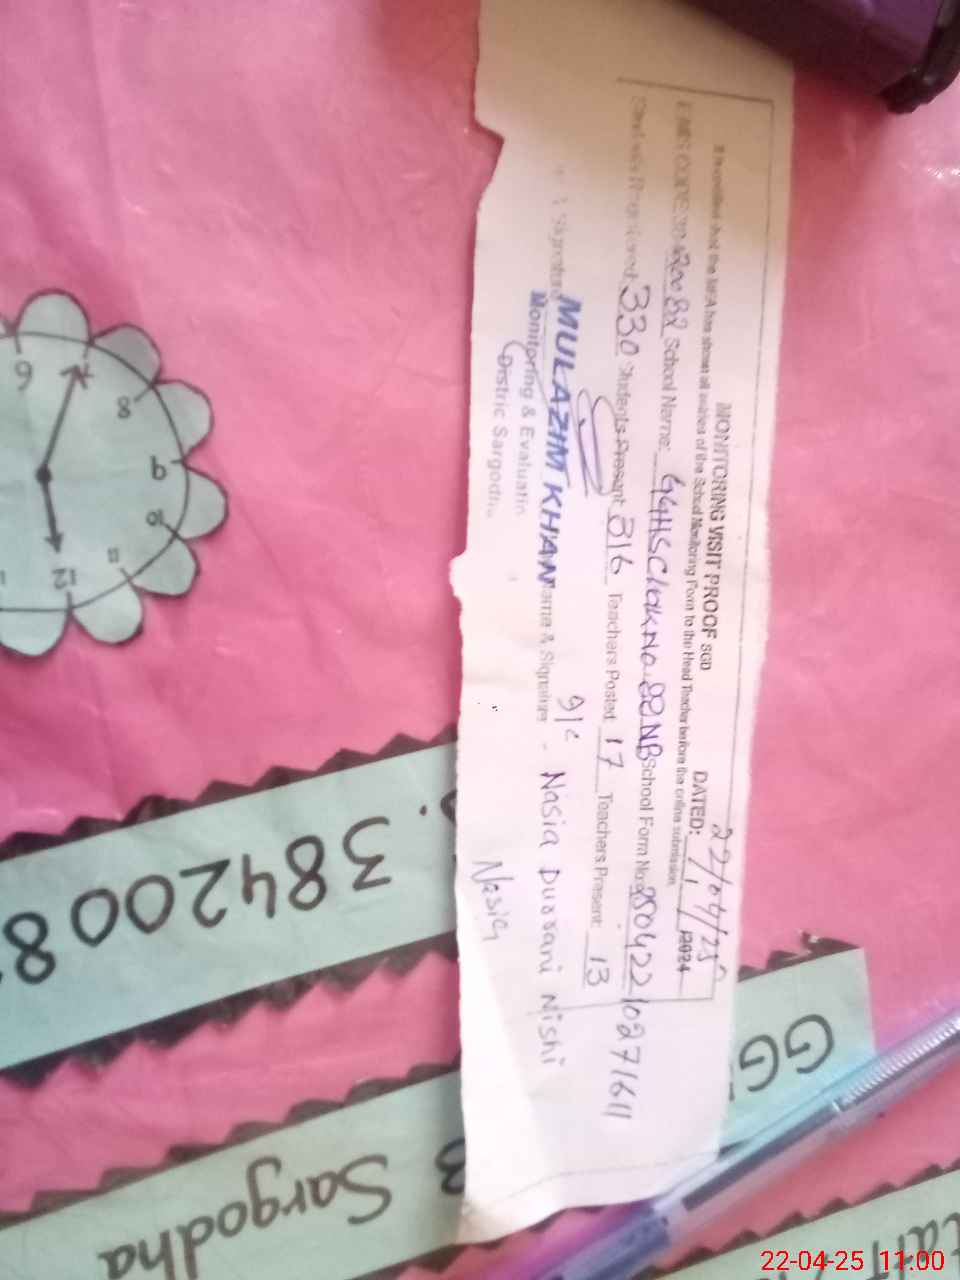 MONITORING VISIT PROOF SGD
DATED: 22/04/25 /2024
It is certified that the MEA has shown all entries of the School Monitoring Form to the Head Teacher before the online submission.
EMIS CODE: 38420082 School Name: GGHS Chak No. 82 NB School Form No: 25042210271611
Students Registered: 330 Students Present 316 Teachers Posted: 17 Teachers Present: 13
& Signature Name & Signature - Nasia Durrani Nishi
MULAZIM KHAN
Monitoring & Evaluatin
Distric Sargodha
Nasia
6
8
9
10
11
12
3842008
GG
Sargodha
22-04-25 11:00